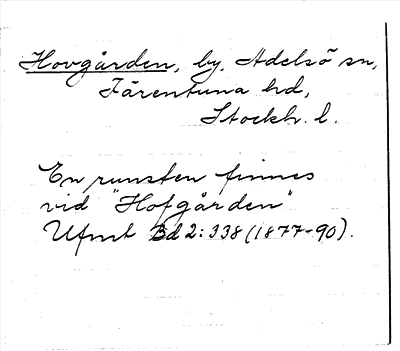 Hovgården, by, Adelsö sn,
Färentuna hd,
Stockh. l.
En runsten finnes
vid "Hofgården"
Ufmt Bd 2:338 (1877-90).